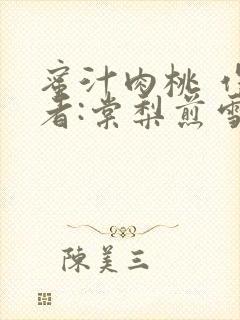 蜜汁肉桃 作
者:棠梨煎雪
陳美三